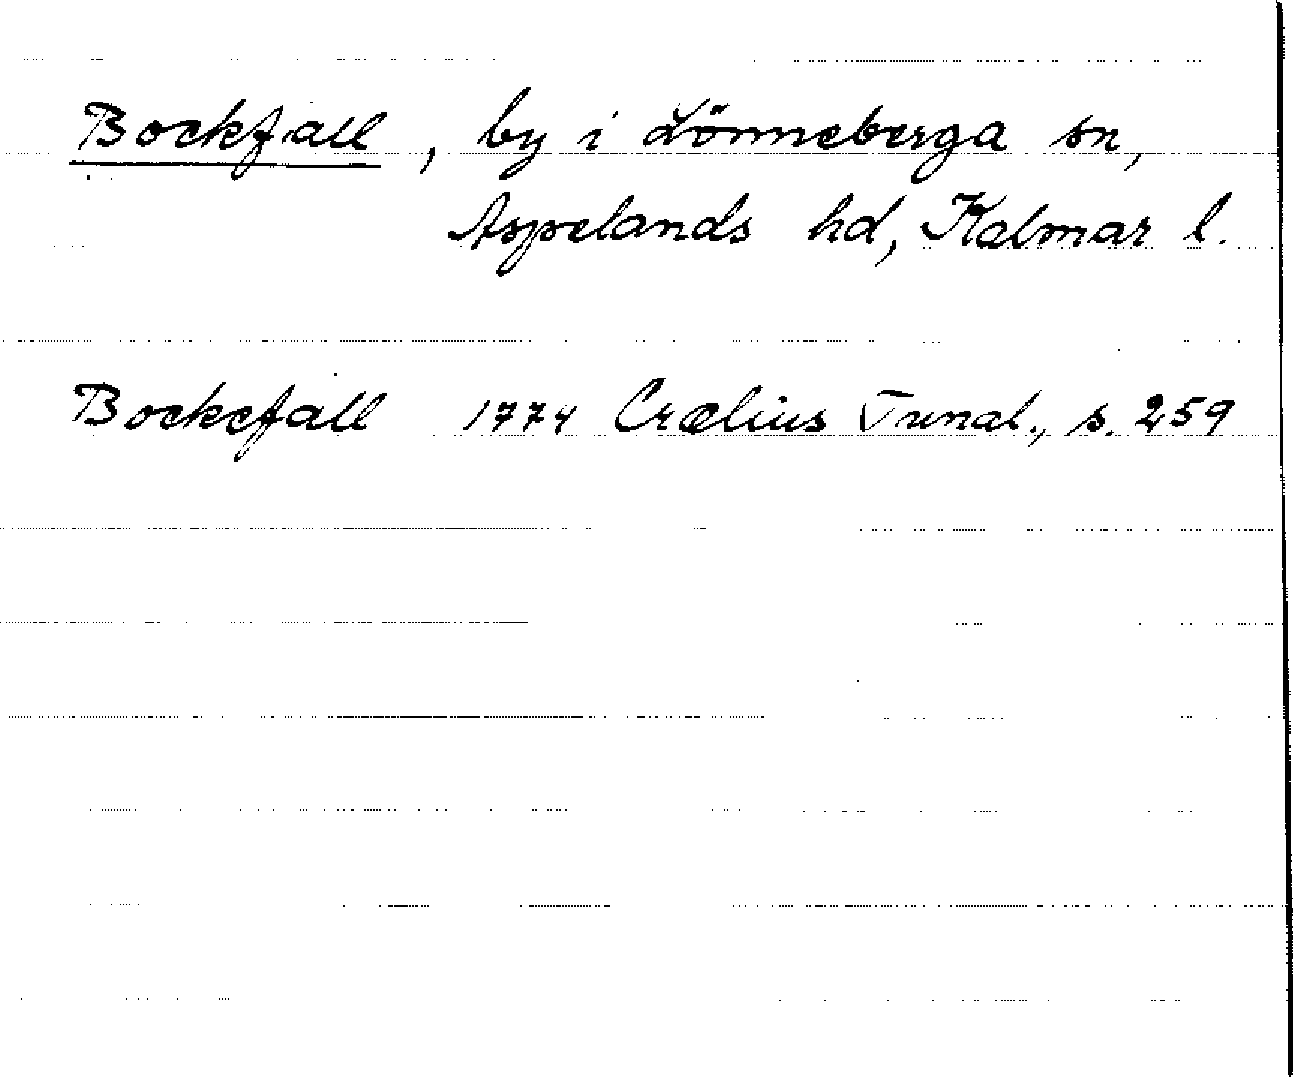 Bockfall, by i Lönneberga sn,
Aspelands hd, Kalmar l.
Bockefall 1774 Crælius Tunal., s. 259